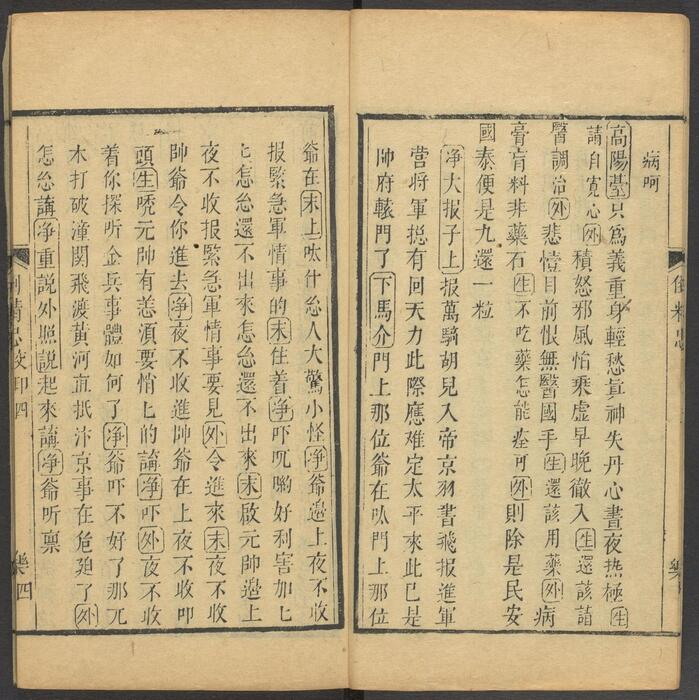 病呵
高陽臺只爲義重身輕愁眞神失丹心晝夜热極生
請自寬心外積怒邪風怕乘虚早晩徹入生還該請
醫調治外悲憶目前恨無醫國手生還該用藥外病
膏肓料非藥石生不吃藥怎能痊可外則除是民安
國泰便是九還一粒
净大报子上报萬騎胡兒入帝京羽書飛报進軍
营将軍揔有回天力此際應难定太平來此已是
帥府轅門了下馬介門上那位爺在呔門上那位
爺在末上呔什麽人大驚小怪净爺邉上夜不收
报緊急軍情事的末住着净吓呪喲好利害加七
七怎麽還不出來怎麽還不出來末啟元帥邉上
夜不收报緊急軍情事要見外令進來末夜不收
帥爺令你進去净夜不收進帥爺在上夜不收叩
頭生唗元帥有恙湏要悄七的講净吓外夜不收
着你探听金兵事體如何了净爺吓不好了那兀
木打破潼関飛渡黃河直抵汴京事在危廹了外
怎麽講净重説外照説起來講净爺听禀
倒精忠
樂
倒精忠 交印 四
樂 四